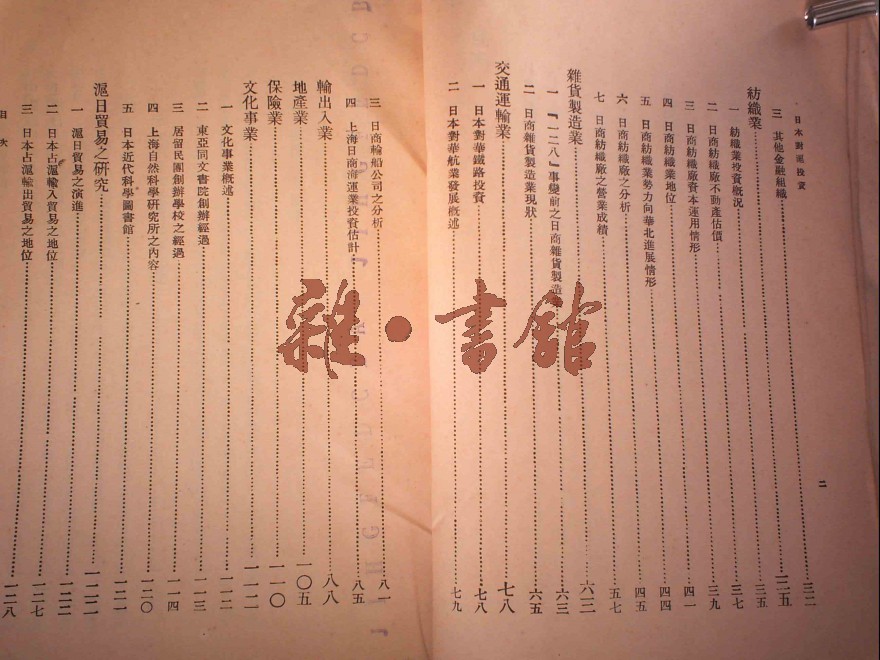 日本對滬投資
二
三 其他金融組織……三二
紡織業……三五
一 紡織業投資概況……三五
二 日商紡織廠不動產估價……三七
三 日商紡織廠資本運用情形……三九
四 日商紡織業地位……四一
五 日商紡織業勢力向華北進展情形……四四
六 日商紡織廠之分析……四五
七 日商紡織廠之營業成績……五七
雜貨製造業……六三
一 『一二八』事變前之日商雜貨製造業……六三
二 日商雜貨製造業現狀……六五
交通運輸業……七八
一 日本對華鐵路投資……七八
二 日本對華航業發展概述……七九
三 日商輪船公司之分析……八一
四 上海日商海運業投資估計……八五
輸出入業……八八
地產業……一〇五
保險業……一一〇
文化事業……一一二
一 文化事業概述……一一二
二 東亞同文書院創辦經過……一一三
三 居留民團創辦學校之經過……一一四
四 上海自然科學研究所之內容……一二〇
五 日本近代科學圖書館……一二一
滬日貿易之研究……一二二
一 滬日貿易之演進……一二二
二 日本占滬輸入貿易之地位……一二七
三 日本占滬輸出貿易之地位……一二八
目次
雜·書館